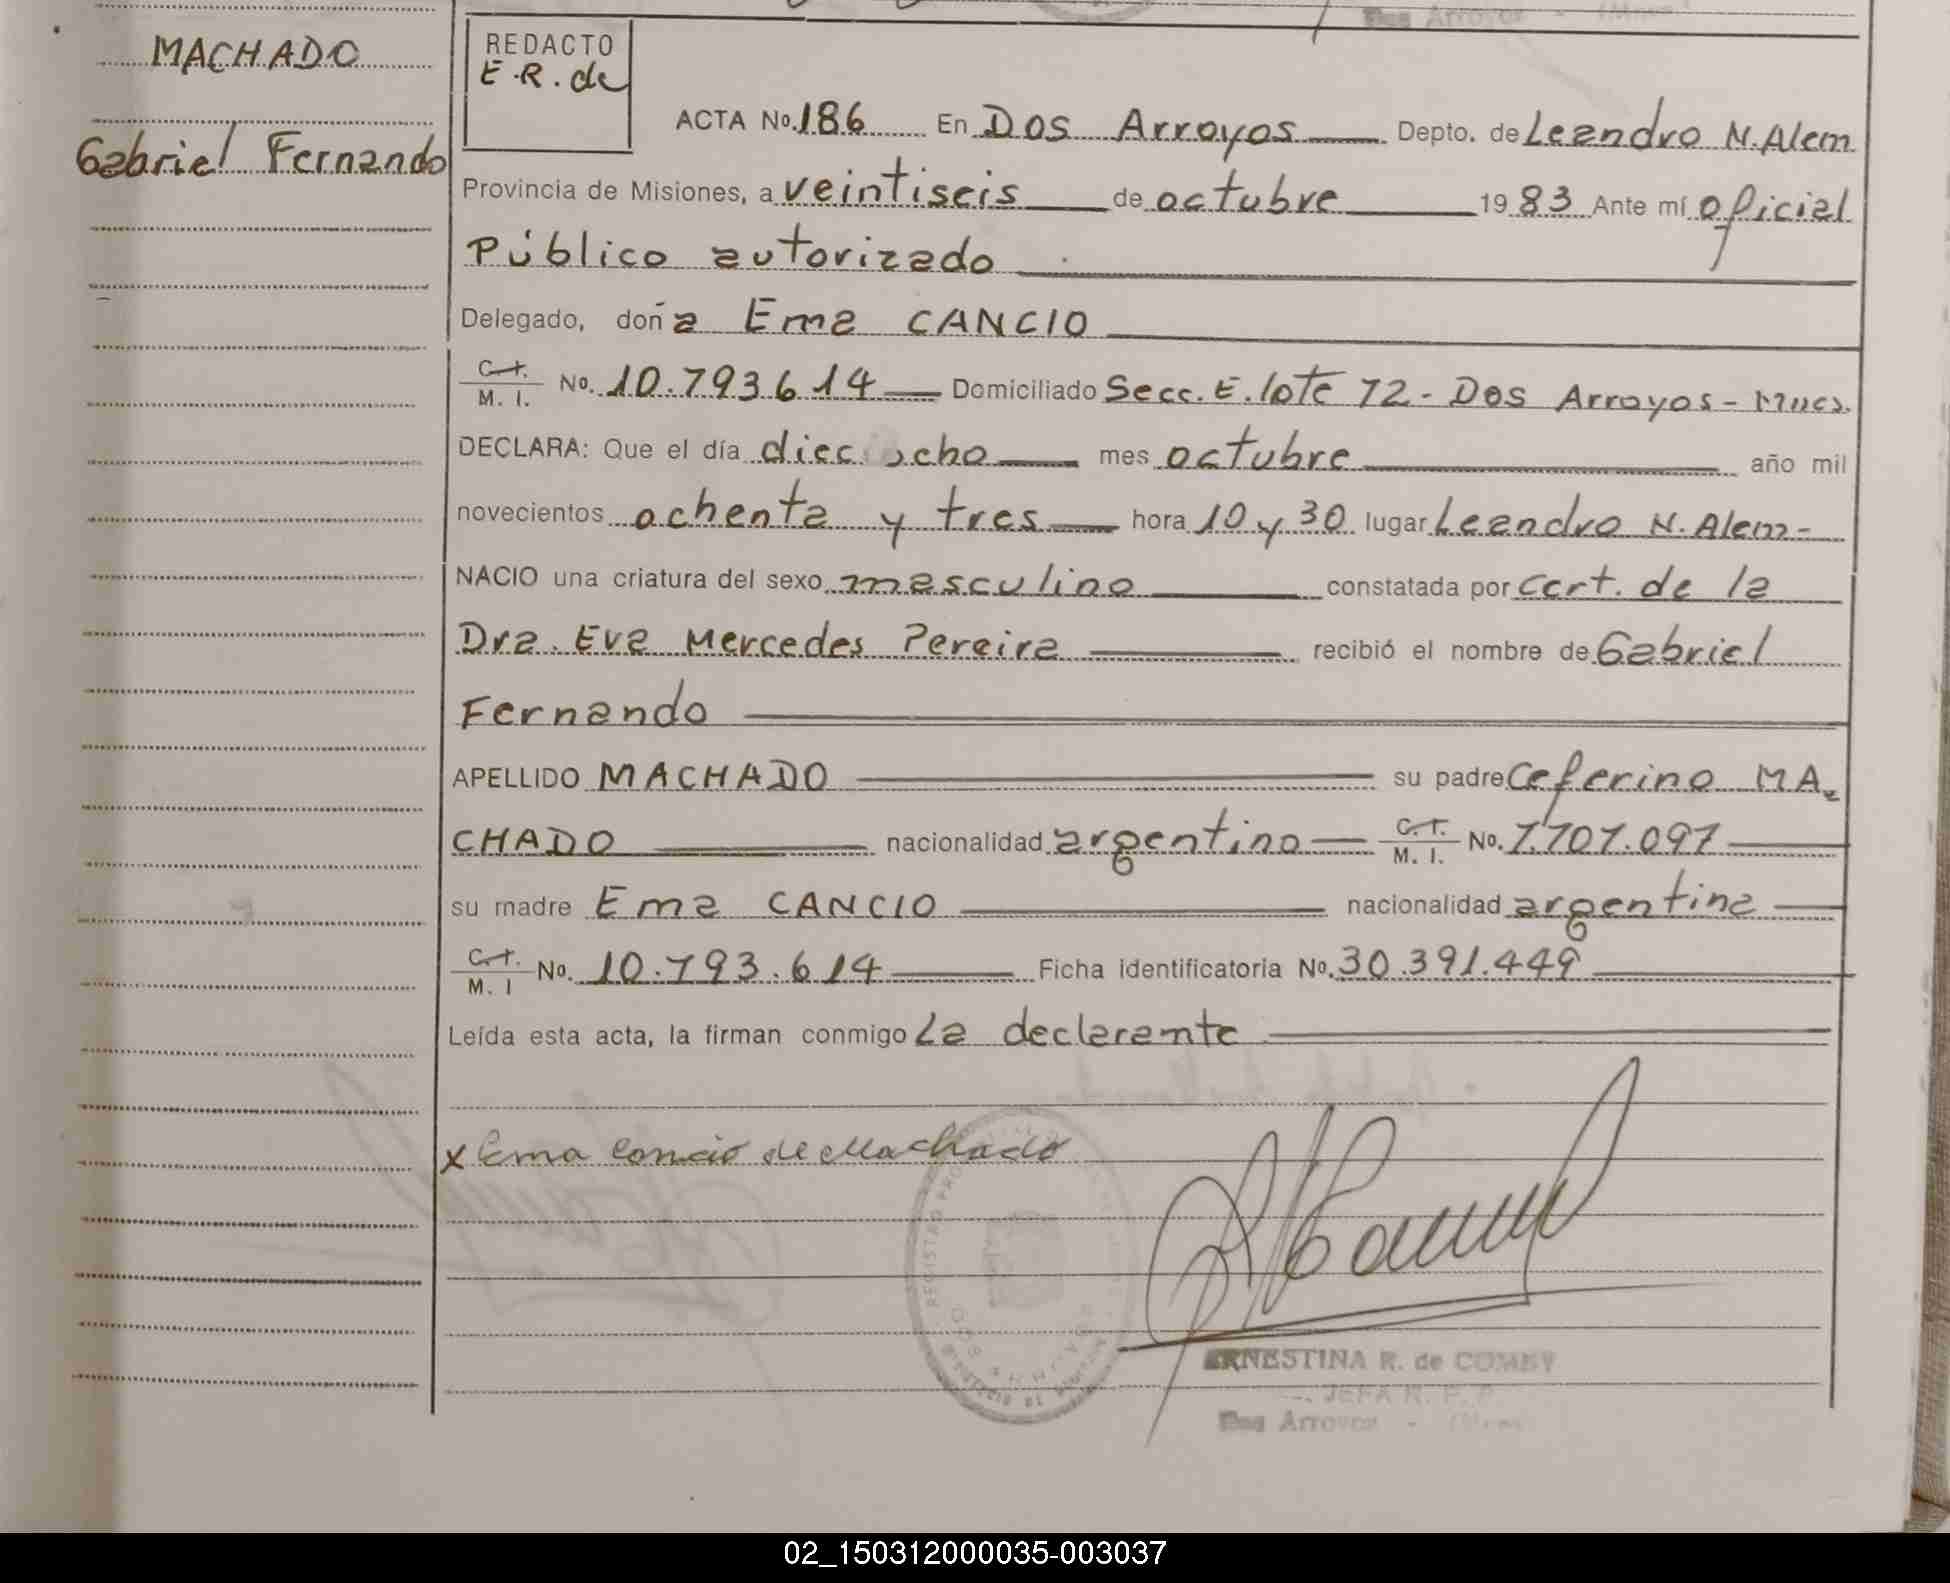 MACHADO
Gabriel Fernando
REDACTO
E.R. de
ACTA No. 186 En Dos Arroyos Depto. de Leandro N. Alem
Provincia de Misiones, a veintiseis de octubre 1983 Ante mí oficial
Público autorizado
Delegado, doña Ema CANCIO
C.I. M. I. No. 10.793.614 Domiciliado Secc. E. lote 72 - Dos Arroyos - Mnes.
DECLARA: Que el día dieciocho mes octubre año mil
novecientos ochenta y tres hora 10 y 30 lugar Leandro N. Alem -
NACIO una criatura del sexo masculino constatada por cert. de la
Dra. Eva Mercedes Pereira recibió el nombre de Gabriel
Fernando
APELLIDO MACHADO su padre Ceferino MA-
CHADO nacionalidad argentino C.I. M. I. No. 7.707.097
su madre Ema CANCIO nacionalidad argentina
C.I. M. I No. 10.793.614 Ficha identificatoria No. 30.391.449
Leída esta acta, la firman conmigo La declarante
x Ema Cancio de Machado
ERNESTINA R. de
JEFA R. P. P.
Dos Arroyos - (Mnes)
02_150312000035-003037